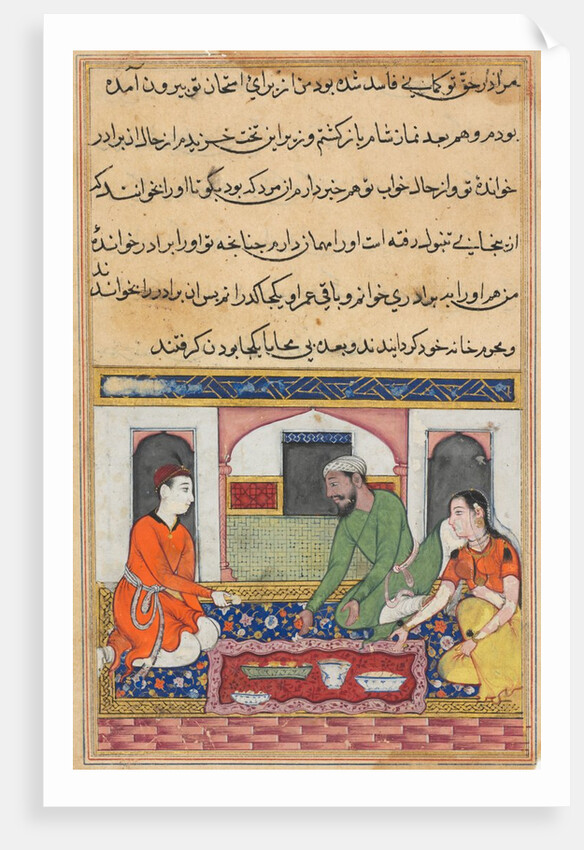 مرا در حق تو کمانی فاسد شده بود من از برای امتحان تو بیرون آمده
بودم و هم بعد نماز شام باز کشتم و زیر این تخت خزیدم از حال این برادر
خوانده تو و از حال خواب تو هم خبر دارم از مردکه بود بکو تا او را بخوانند که
از بتولی رفته است او را مهمان دارم چنانچه تو او را برادر خوانده
من هم او را به برادری خوانم و باقی عمر او یکجا کذرانم پس آن برادر را بخواندند
و محرم خانه خود کردانیدند و بعده بی محابا یکجا بودن کرفتند